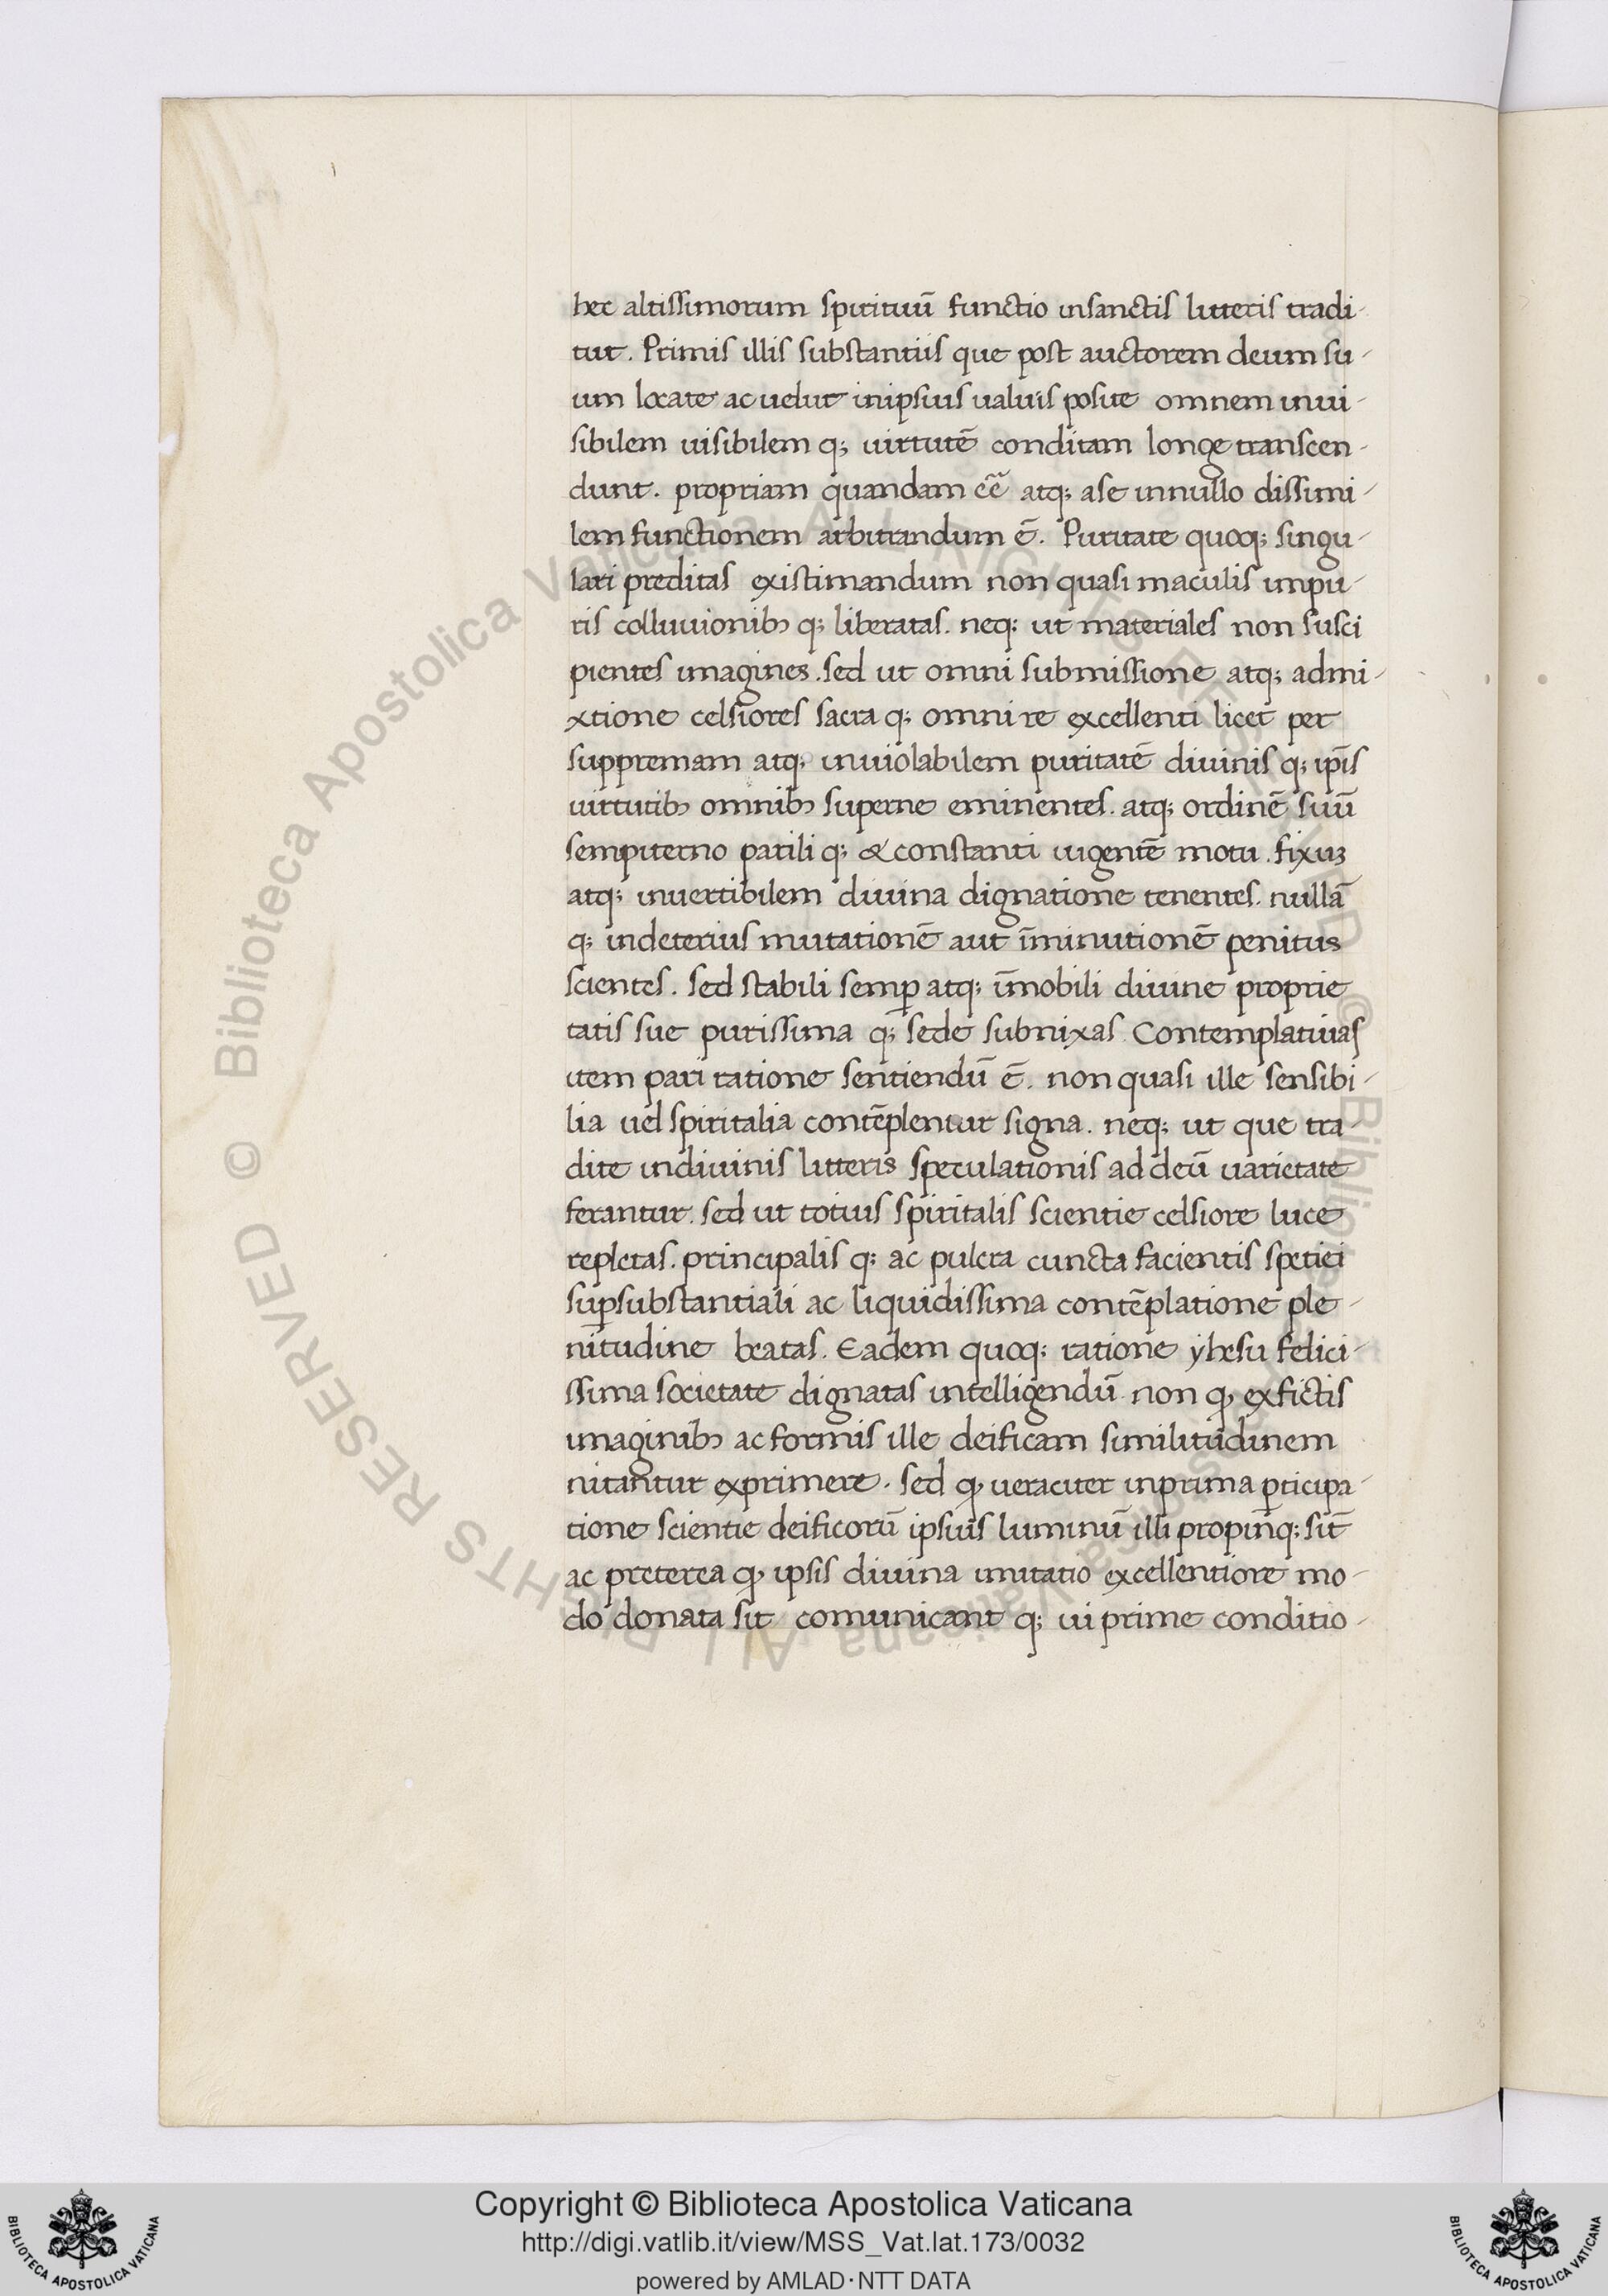 hec altissimorum spirituū functio insanctis litteris tradi-
tur. Primis illis substantiis que post auctorem deum su-
um locate ac uelut inipsius ualuis posite omnem inui-
sibilem uisibilem q; uirtutē conditam longe transcen-
dunt. propriam quandam eē̄ atq; ase innullo dissimi-
lem functionem arbitrandum ē. Puritate quoq; singu-
lari preditas existimandum non quasi maculis impu-
ris colluuionibꝰ q; liberatas. neq; ut materiales non susci
pientes imagines. sed ut omni submissione atq; admi-
xtione celsiores sacra q; omni re excellenti licet per
suppremam atq; inuiolabilem puritatē diuinis q; ip̄is
uirtutibꝰ omnibꝰ superne eminentes. atq; ordinē suū
sempiterno parili q; & constanti uigentē motu. fixuꝫ
atq; inuertibilem diuina dignatione tenentes. nullā
q; indeterius mutationē aut īminutionē penitus
scientes. sed stabili semꝑ atq; īmobili diuine proprie
tatis sue purissima q; sede subnixas. Contemplatiuas
item pari ratione sentiendū ē. non quasi ille sensibi-
lia uel spiritalia contēplentur signa. neq; ut que tra-
dite indiuinis litteris speculationis ad deū uarietate
ferantur. sed ut totius spiritalis scientie celsiore luce
repletas. principalis q; ac pulcra cuncta facientis spetiei
suꝑsubstantiali ac liquidissima contēplatione ple-
nitudine beatas. Eadem quoq; ratione yhesu felici-
ssima societate dignatas intelligendū. non ꝙ exfictis
imaginibꝰ ac formis ille deificam similitudinem
nitantur exprimere. sed ꝙ ueraciter inprima ꝑticipa-
tione scientie deificorū ipsius luminū illi propinq; sīt
ac preterea ꝙ ipsis diuina imitatio excellentiore mo-
do donata sit comunicant q; ui prime conditio-
© Biblioteca Apostolica Vaticana ALL RIGHTS RESERVED
Copyright © Biblioteca Apostolica Vaticana
http://digi.vatlib.it/view/MSS_Vat.lat.173/0032
powered by AMLAD·NTT DATA
BIBLIOTECA APOSTOLICA VATICANA
BIBLIOTECA APOSTOLICA VATICANA